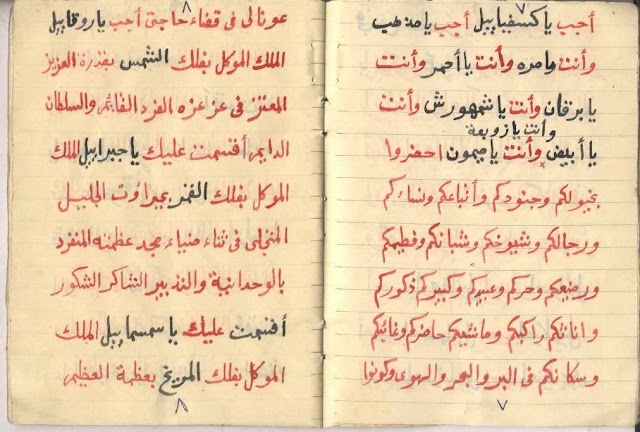 ٧
أجب يا كسفيابيل أجب يا مذهب
وأنت يا مره وأنت يا أحمر وأنت
يا برقان وأنت يا شمهورش وأنت
وأنت يا زوبعة
يا أبيض وأنت يا ميمون احضروا
بخيولكم وجنودكم وأتباعكم ونساءكم
ورجالكم وشيوخكم وشبانكم وفطيمكم
ورضيعكم وحركم وعبيدكم وكبيركم ذكوركم
واناثكم راكبكم وماشيكم حاضركم وغائبكم
وسكانكم فى البر والبحر والهوى وكونوا
٧
٨
عونا لى فى قضاء حاجتى أجب يا روقاييل
الملك الموكل بفلك الشمس بقدرة العزيز
المعتز فى عز عزه الفرد القائم والسلطان
الدايم أقسمت عليك يا جبراييل الملك
الموكل بفلك القمر بجبراوت الجليل
المتجلى فى ثناء ضياء مجد عظمته المنفرد
بالوحدانية والتدبير الشاكر الشكور
أقسمت عليك يا سمسماييل الملك
الموكل بفلك المريخ بعظمة العظيم
٨